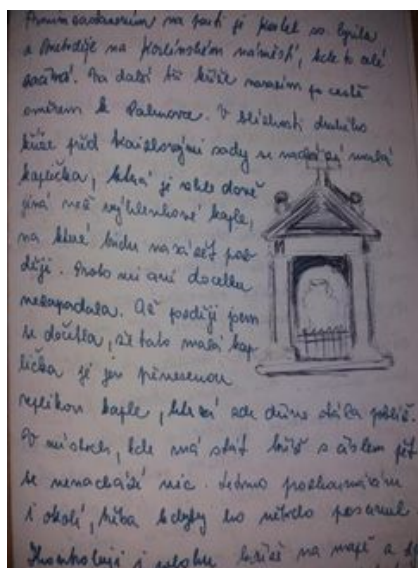 Prvním zastavením na pouti je kostel sv. Cyrila
a Metoděje na Karlínském náměstí, kde to celé
začíná. Na další tři kříže narazím po cestě
směrem k Palmovce. V blízkosti druhého
kříže před Kaizlovými sady se nachází malá
kaplička, která je ale dost
jiná než výklenkové kaple,
na které budu narážet poz-
ději. Proto mi ani docela
nezapadala. Až později jsem
se dočetla, že tato malá kap-
lička je jen přenesenou
replikou kaple, která zde dříve stála poblíž.
V místech, kde má stát kříž s číslem pět
se nenachází nic. Letmo prozkoumávám
i okolí, třeba kdyby ho někdo posunul
Zkontroluji i polohu kříže na mapě a